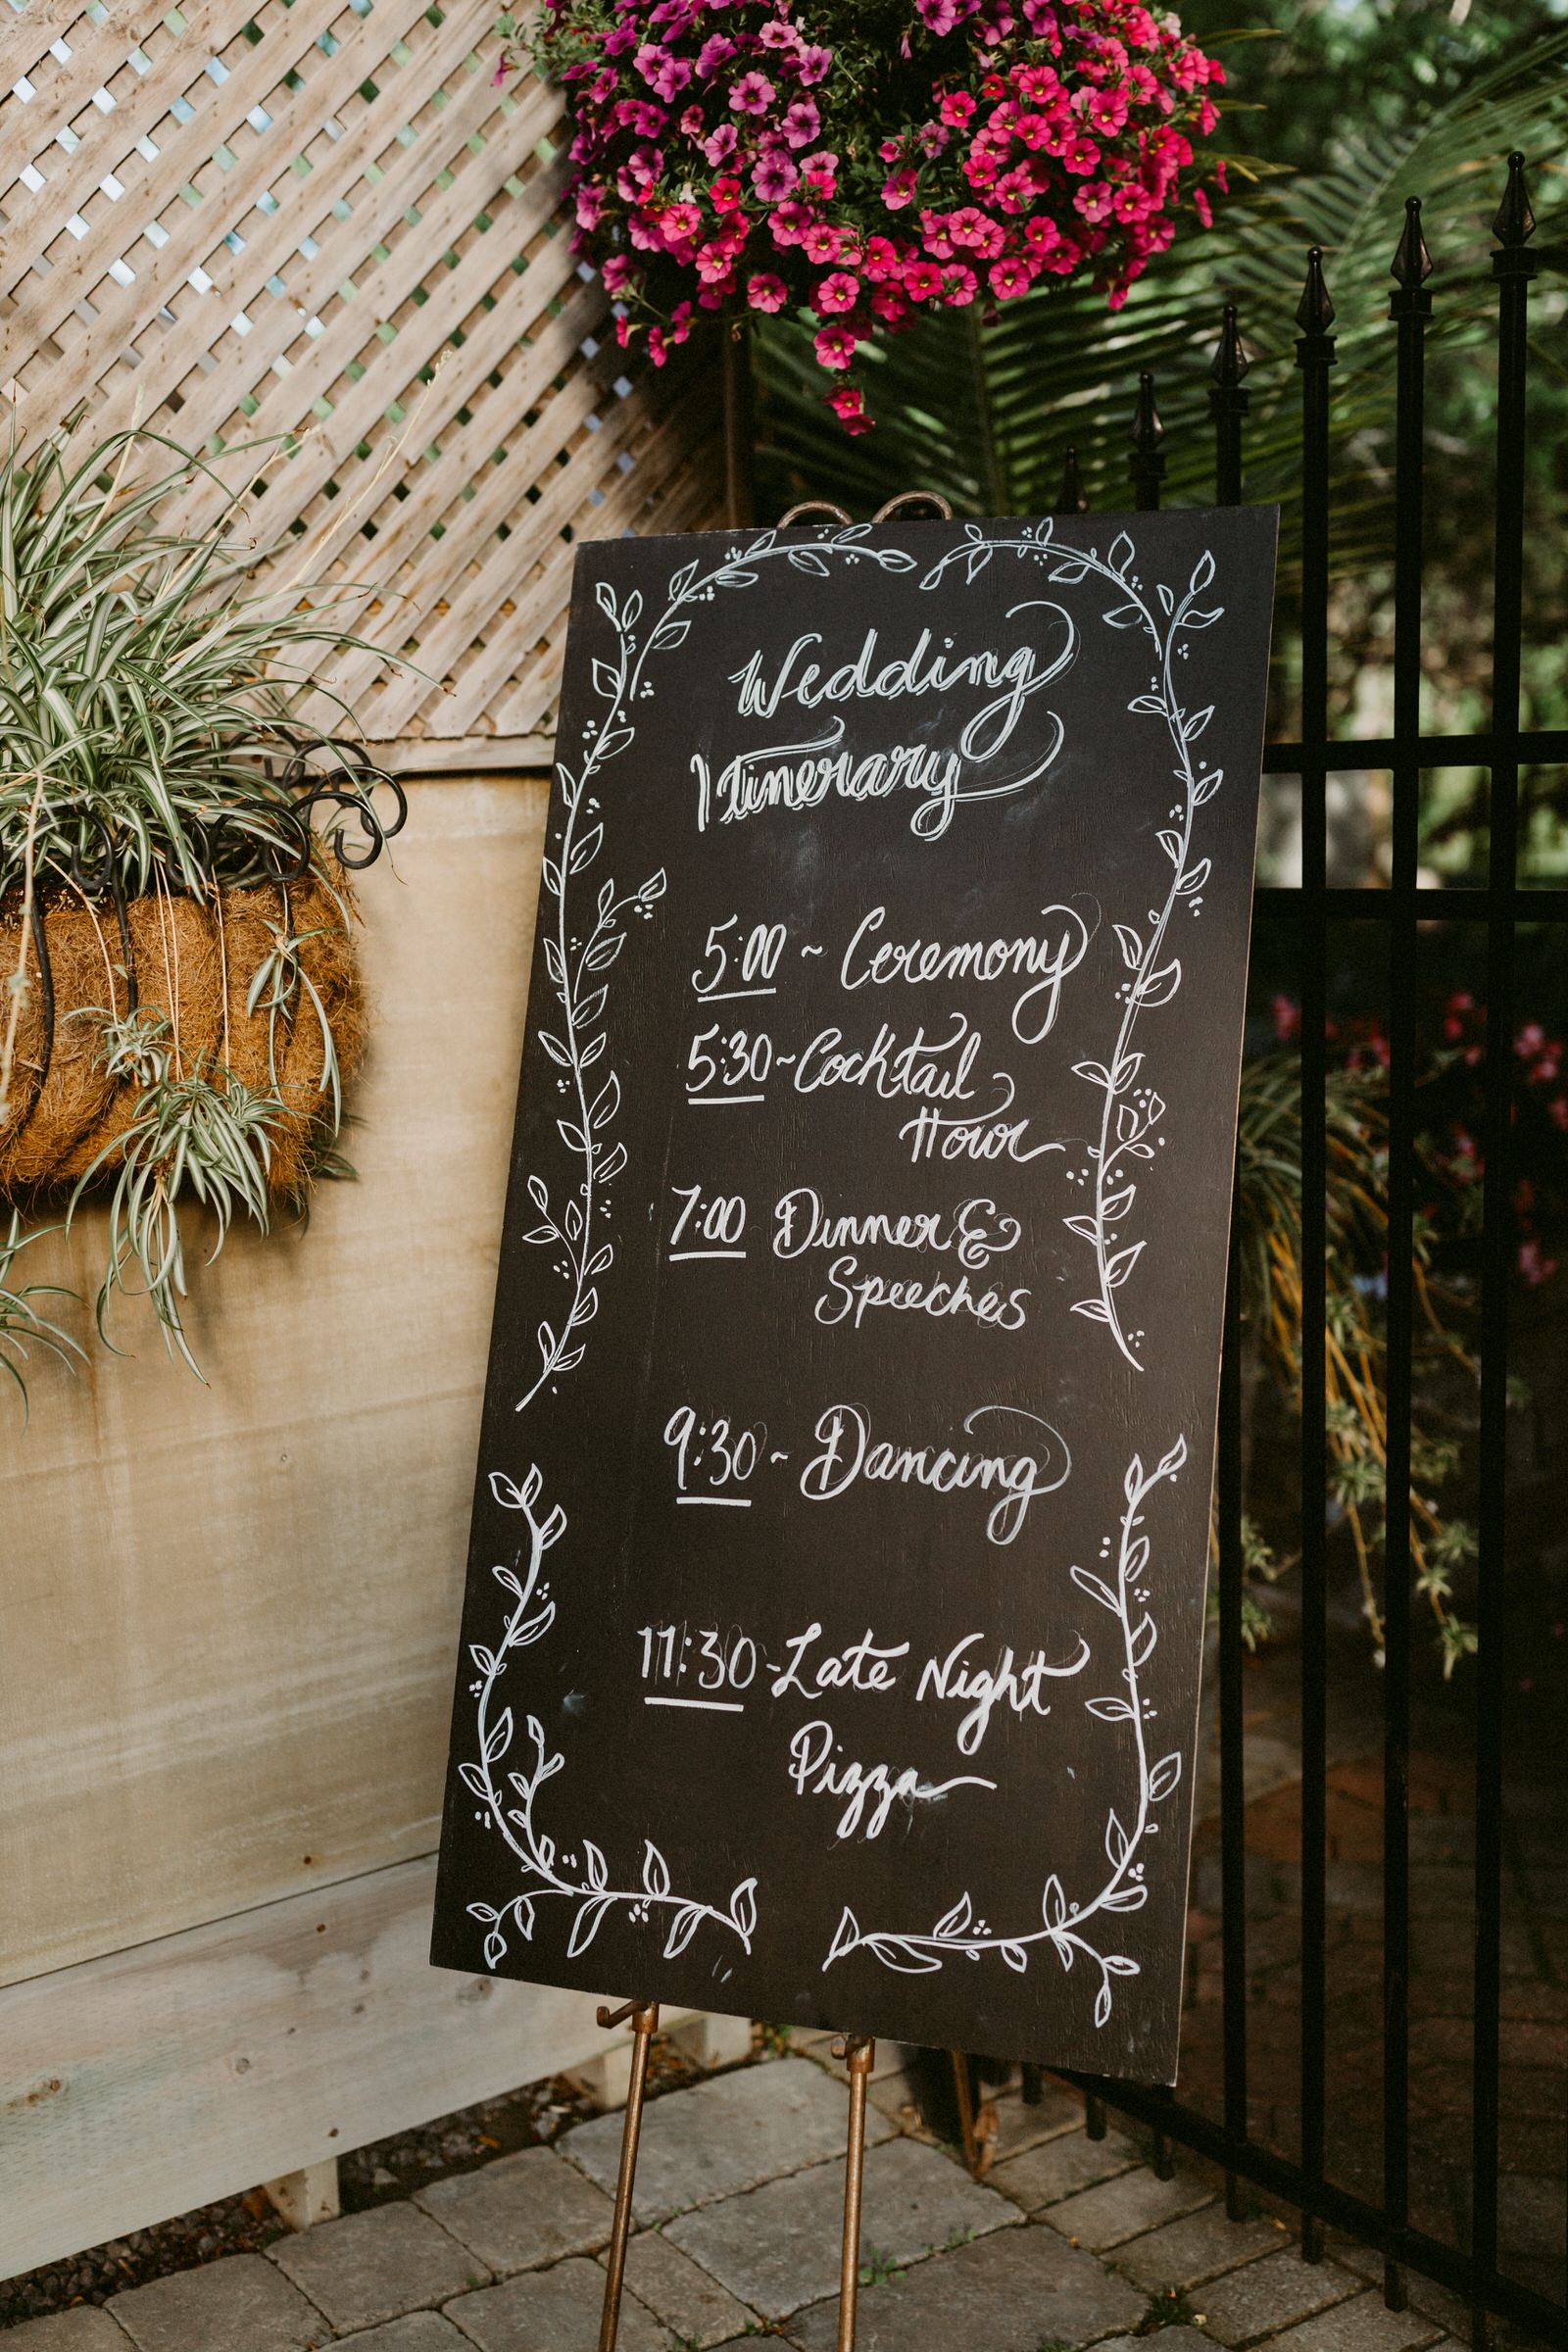 Wedding
Itinerary
5:00 ~ Ceremony
5:30 ~ Cocktail
Hour
7:00 Dinner &
Speeches
9:30 ~ Dancing
11:30 - Late Night
Pizza